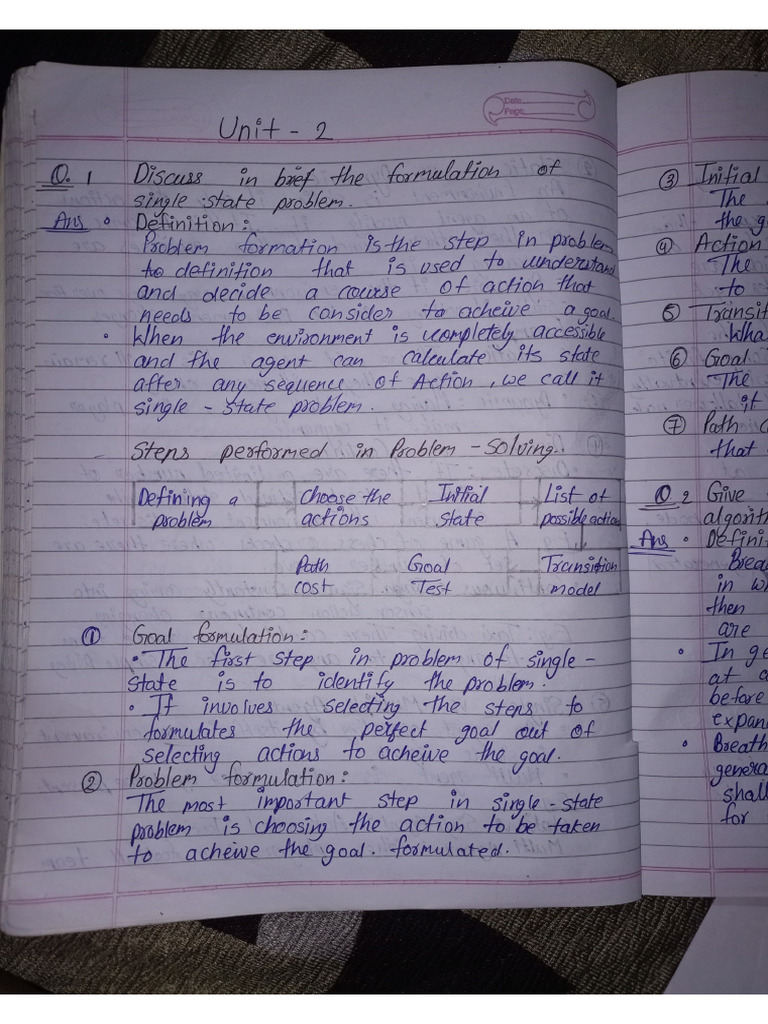 Date
Page
Unit - 2
Q. 1 Discuss in brief the formulation of
single state problem.
Ans • Definition:
Problem formation is the step in problem
to definition that is used to understand
and decide a course of action that
needs to be consider to acheive a goal.
• When the environment is completely accessible
and the agent can calculate its state
after any sequence of Action, we call it
single - state problem.
Steps performed in Problem - Solving.
Defining a problem
Choose the actions
Initial state
List of possible action
Path cost
Goal Test
Transition model
① Goal formulation:
• The first step in problem of single-
state is to identify the problem.
• It involves selecting the steps to
formulates the perfect goal out of
selecting actions to acheive the goal.
② Problem formulation:
The most important step in single-state
problem is choosing the action to be taken
to acheive the goal. formulated.
③ Initial
The
the g
④ Action
The
to
⑤ Transit
Wha
⑥ Goal
The
it
⑦ Path
that
Q. 2 Give
algorit
Ans • Defini
Brea
in w
then
are
• In ge
at
before
expan
• Breath
genera
shall
for